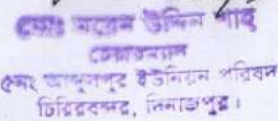 মোঃ ময়েন উদ্দিন শাহ
চেয়ারম্যান
৫নং আব্দুলপুর ইউনিয়ন পরিষদ
চিরিরবন্দর, দিনাজপুর।